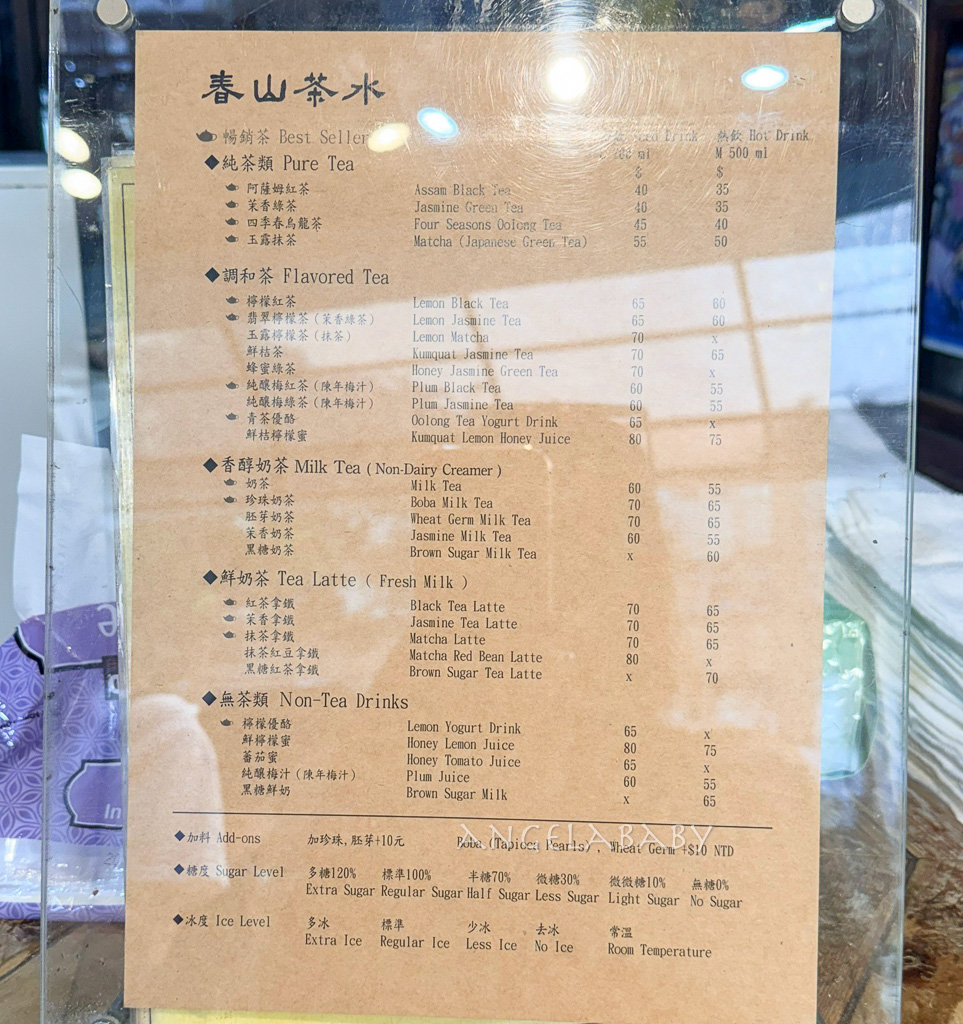 春山茶水
暢銷茶 Best Seller Drink 熱飲 Hot Drink
ml M 500 ml
◆純茶類 Pure Tea $ $
阿薩姆紅茶 Assam Black Tea 40 35
茉香綠茶 Jasmine Green Tea 40 35
四季春烏龍茶 Four Seasons Oolong Tea 45 40
玉露抹茶 Matcha (Japanese Green Tea) 55 50
◆調和茶 Flavored Tea
檸檬紅茶 Lemon Black Tea 65 60
翡翠檸檬茶(茉香綠茶) Lemon Jasmine Tea 65 60
玉露檸檬茶(抹茶) Lemon Matcha 70 x
鮮桔茶 Kumquat Jasmine Tea 70 65
蜂蜜綠茶 Honey Jasmine Green Tea 70 x
純釀梅紅茶(陳年梅汁) Plum Black Tea 60 55
純釀梅綠茶(陳年梅汁) Plum Jasmine Tea 60 55
青茶優酪 Oolong Tea Yogurt Drink 65 x
鮮桔檸檬蜜 Kumquat Lemon Honey Juice 80 75
◆香醇奶茶 Milk Tea ( Non-Dairy Creamer )
奶茶 Milk Tea 60 55
珍珠奶茶 Boba Milk Tea 70 65
胚芽奶茶 Wheat Germ Milk Tea 70 65
茉香奶茶 Jasmine Milk Tea 60 55
黑糖奶茶 Brown Sugar Milk Tea x 60
◆鮮奶茶 Tea Latte ( Fresh Milk )
紅茶拿鐵 Black Tea Latte 70 65
茉香拿鐵 Jasmine Tea Latte 70 65
抹茶拿鐵 Matcha Latte 70 65
抹茶紅豆拿鐵 Matcha Red Bean Latte 80 x
黑糖紅茶拿鐵 Brown Sugar Tea Latte x 70
◆無茶類 Non-Tea Drinks
檸檬優酪 Lemon Yogurt Drink 65 x
鮮檸檬蜜 Honey Lemon Juice 80 75
蕃茄蜜 Honey Tomato Juice 65 x
純釀梅汁(陳年梅汁) Plum Juice 60 55
黑糖鮮奶 Brown Sugar Milk x 65
ANGELABABY
◆加料 Add-ons 加珍珠,胚芽+10元 Boba (Tapioca Pearls) , Wheat Germ +$10 NTD
◆糖度 Sugar Level 多糖120% 標準100% 半糖70% 微糖30% 微微糖10% 無糖0%
Extra Sugar Regular Sugar Half Sugar Less Sugar Light Sugar No Sugar
◆冰度 Ice Level 多冰 標準 少冰 去冰 常溫
Extra Ice Regular Ice Less Ice No Ice Room Temperature
In